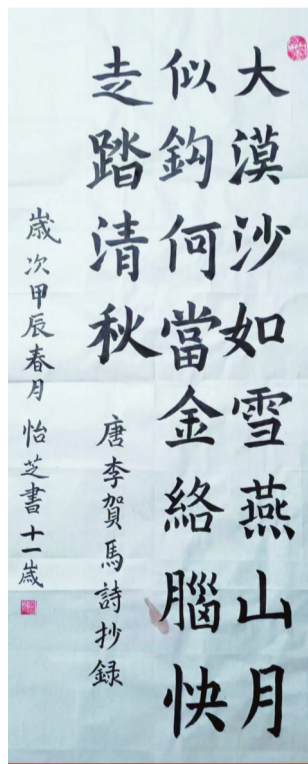 大漠沙如雪燕山月
似鈎何當金絡腦快
走踏清秋
唐李賀馬詩抄録
歲次甲辰春月怡芝書十一歲